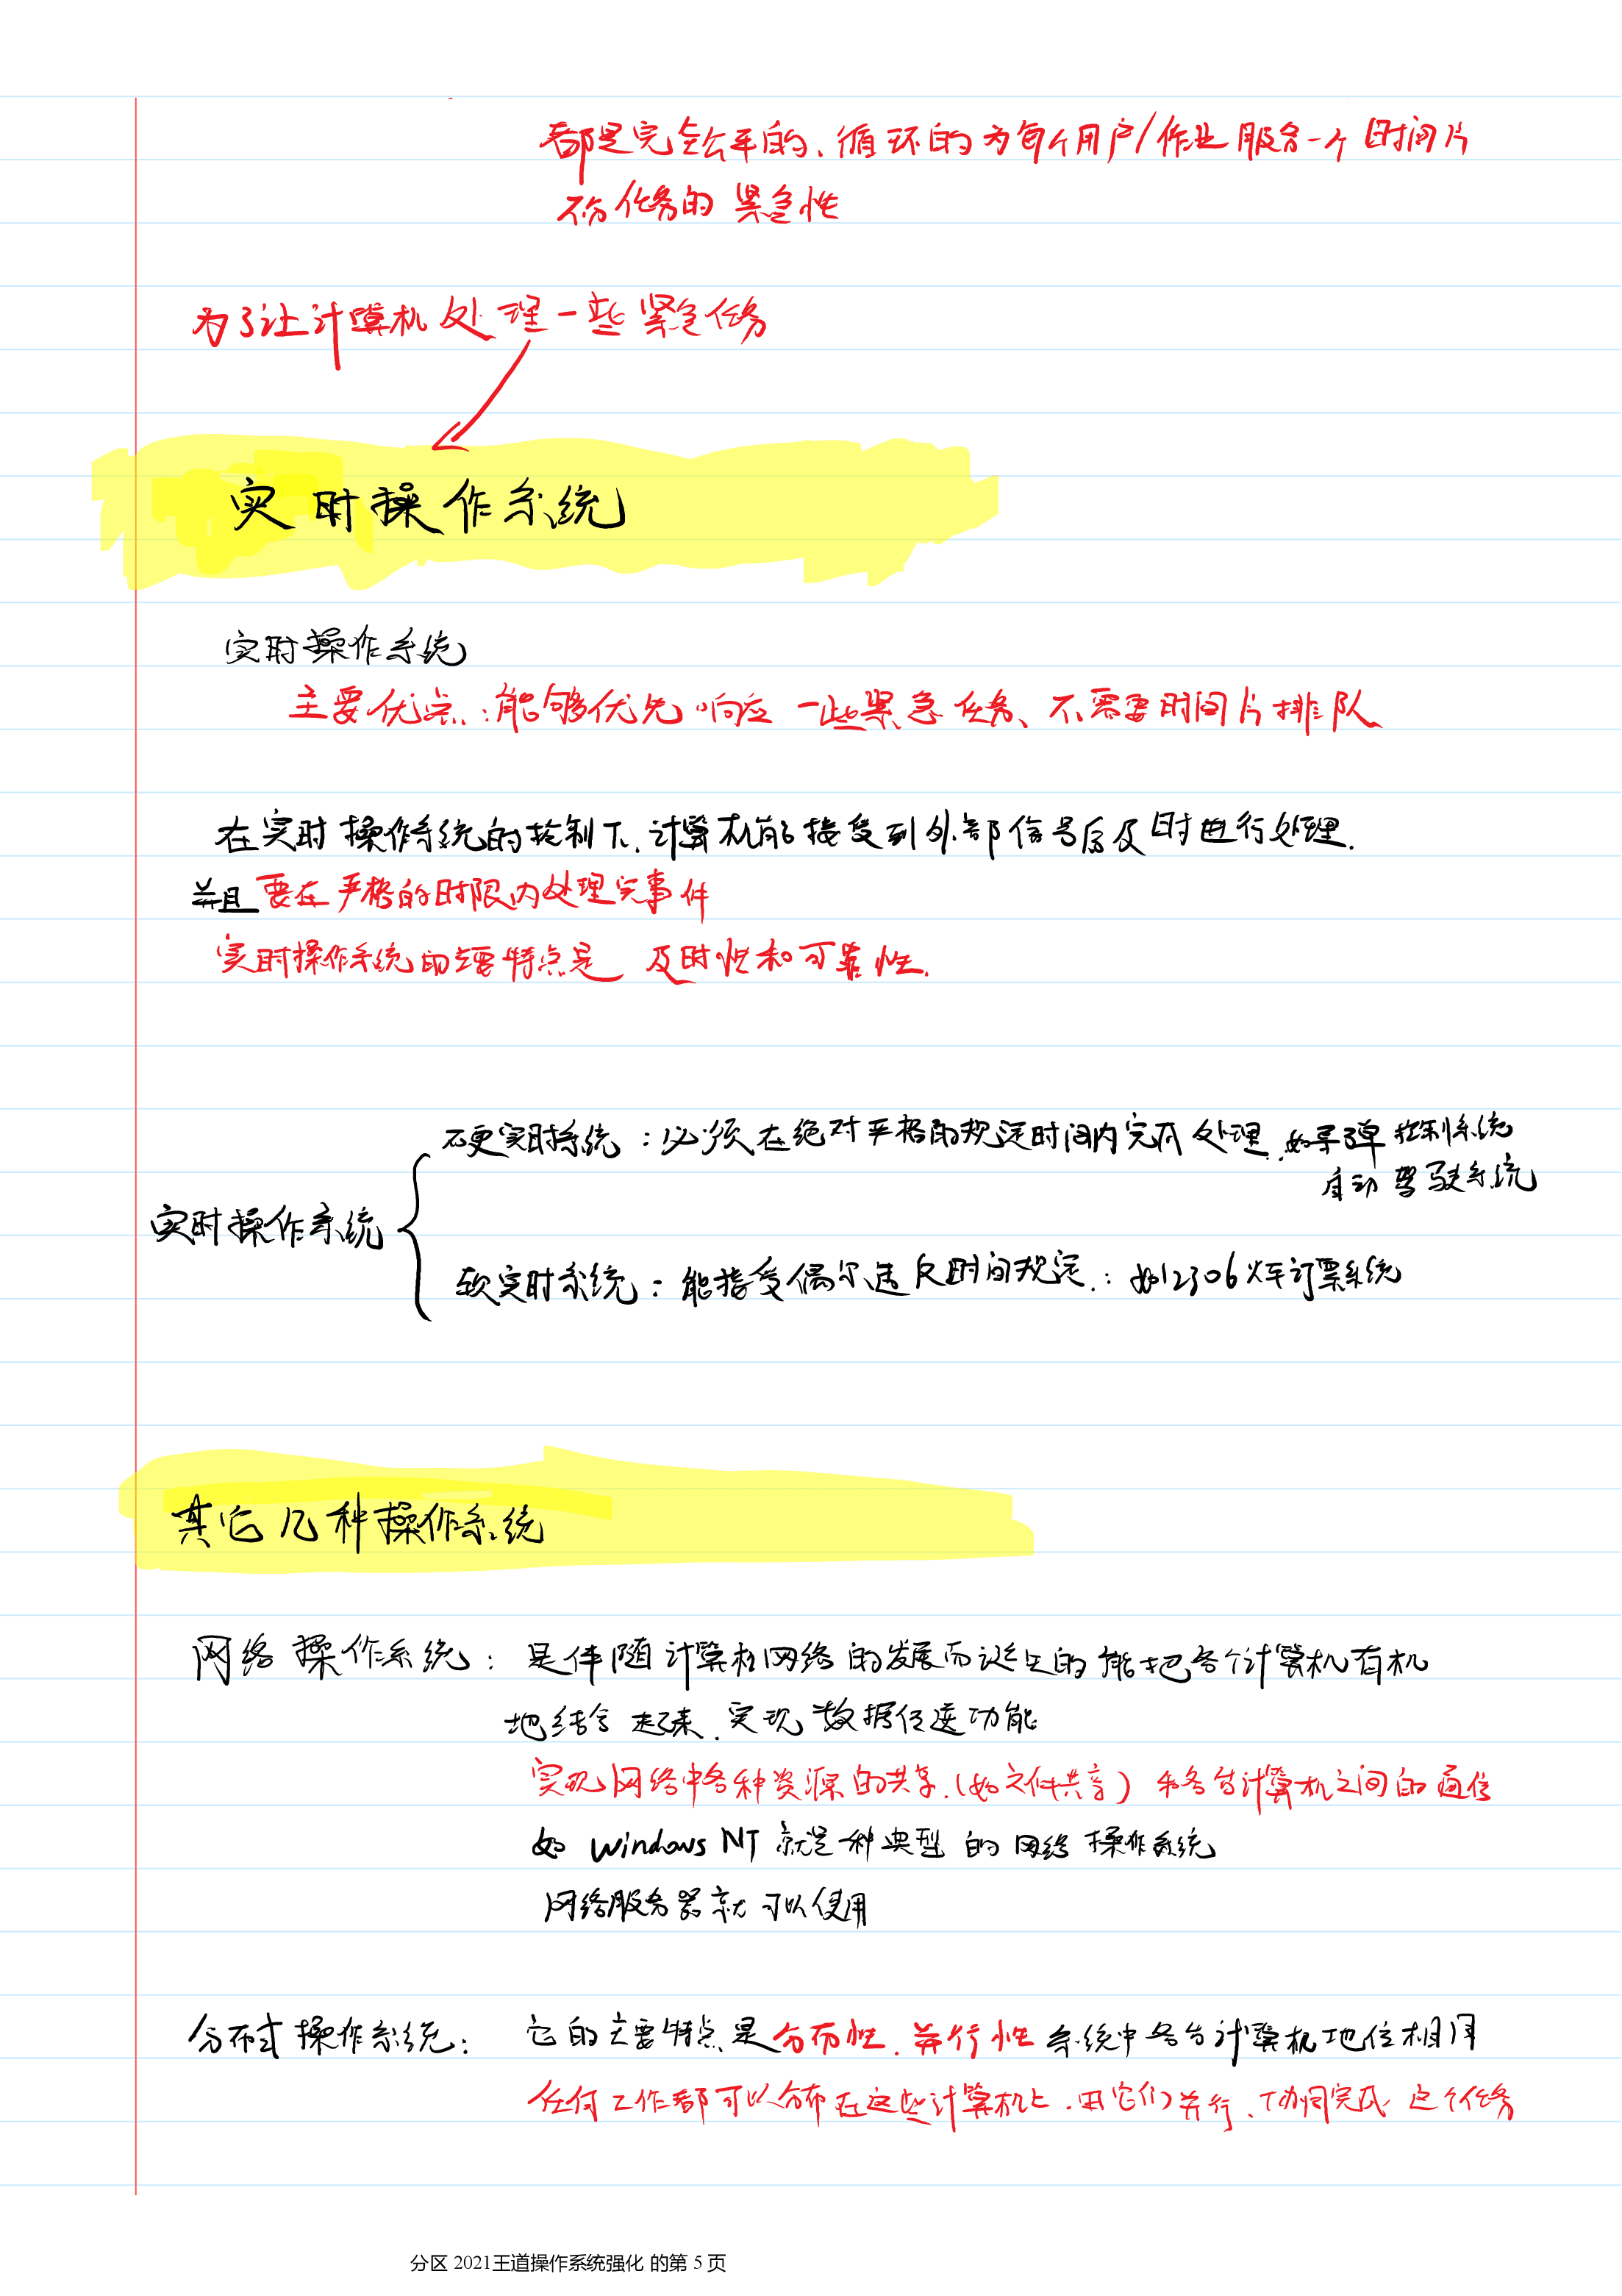 都是完全公平的、循环的为每个用户/作业服务一个时间片
不分任务的紧急性
为了让计算机处理一些紧急任务
实时操作系统
实时操作系统
主要优点:能够优先响应一些紧急任务、不需要时间片排队
在实时操作系统的控制下,计算机能接受到外部信号后及时进行处理.
并且要在严格的时限内处理完事件
实时操作系统的主要特点是 及时性和可靠性.
硬实时系统:必须在绝对严格的规定时间内完成处理.如导弹控制系统
自动驾驶系统
实时操作系统
软实时系统:能接受偶尔违反时间规定.:如12306火车订票系统
其它几种操作系统
网络操作系统: 是伴随计算机网络的发展而诞生的能把各个计算机有机
地结合起来.实现数据传送功能
实现网络中各种资源的共享.(如文件共享)和各台计算机之间的通信
如 Windows NT 就是一种典型的网络操作系统
网络服务器就可以使用
分布式操作系统: 它的主要特点是分布性.并行性 系统中各台计算机地位相同
任何工作都可以分布在这些计算机上.由它们并行、协同完成这个任务
分区 2021王道操作系统强化 的第 5 页